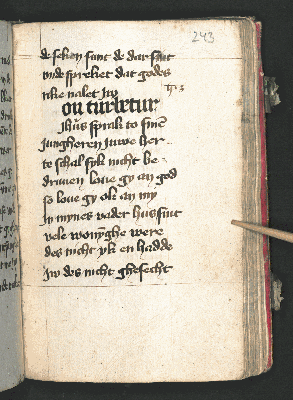 243
de seken sunt de dar sint
vnde spreket dat godes
rike nalet iw
on turbetur
ihūs sprak to sinē
iungheren iuwe her
te schal syk nicht be
druuen loue gy an god
so loue gy ok an my
in mynes vader hus sint
vele wonȳghe were
des nicht yk en hadde
iw des nicht ghesecht